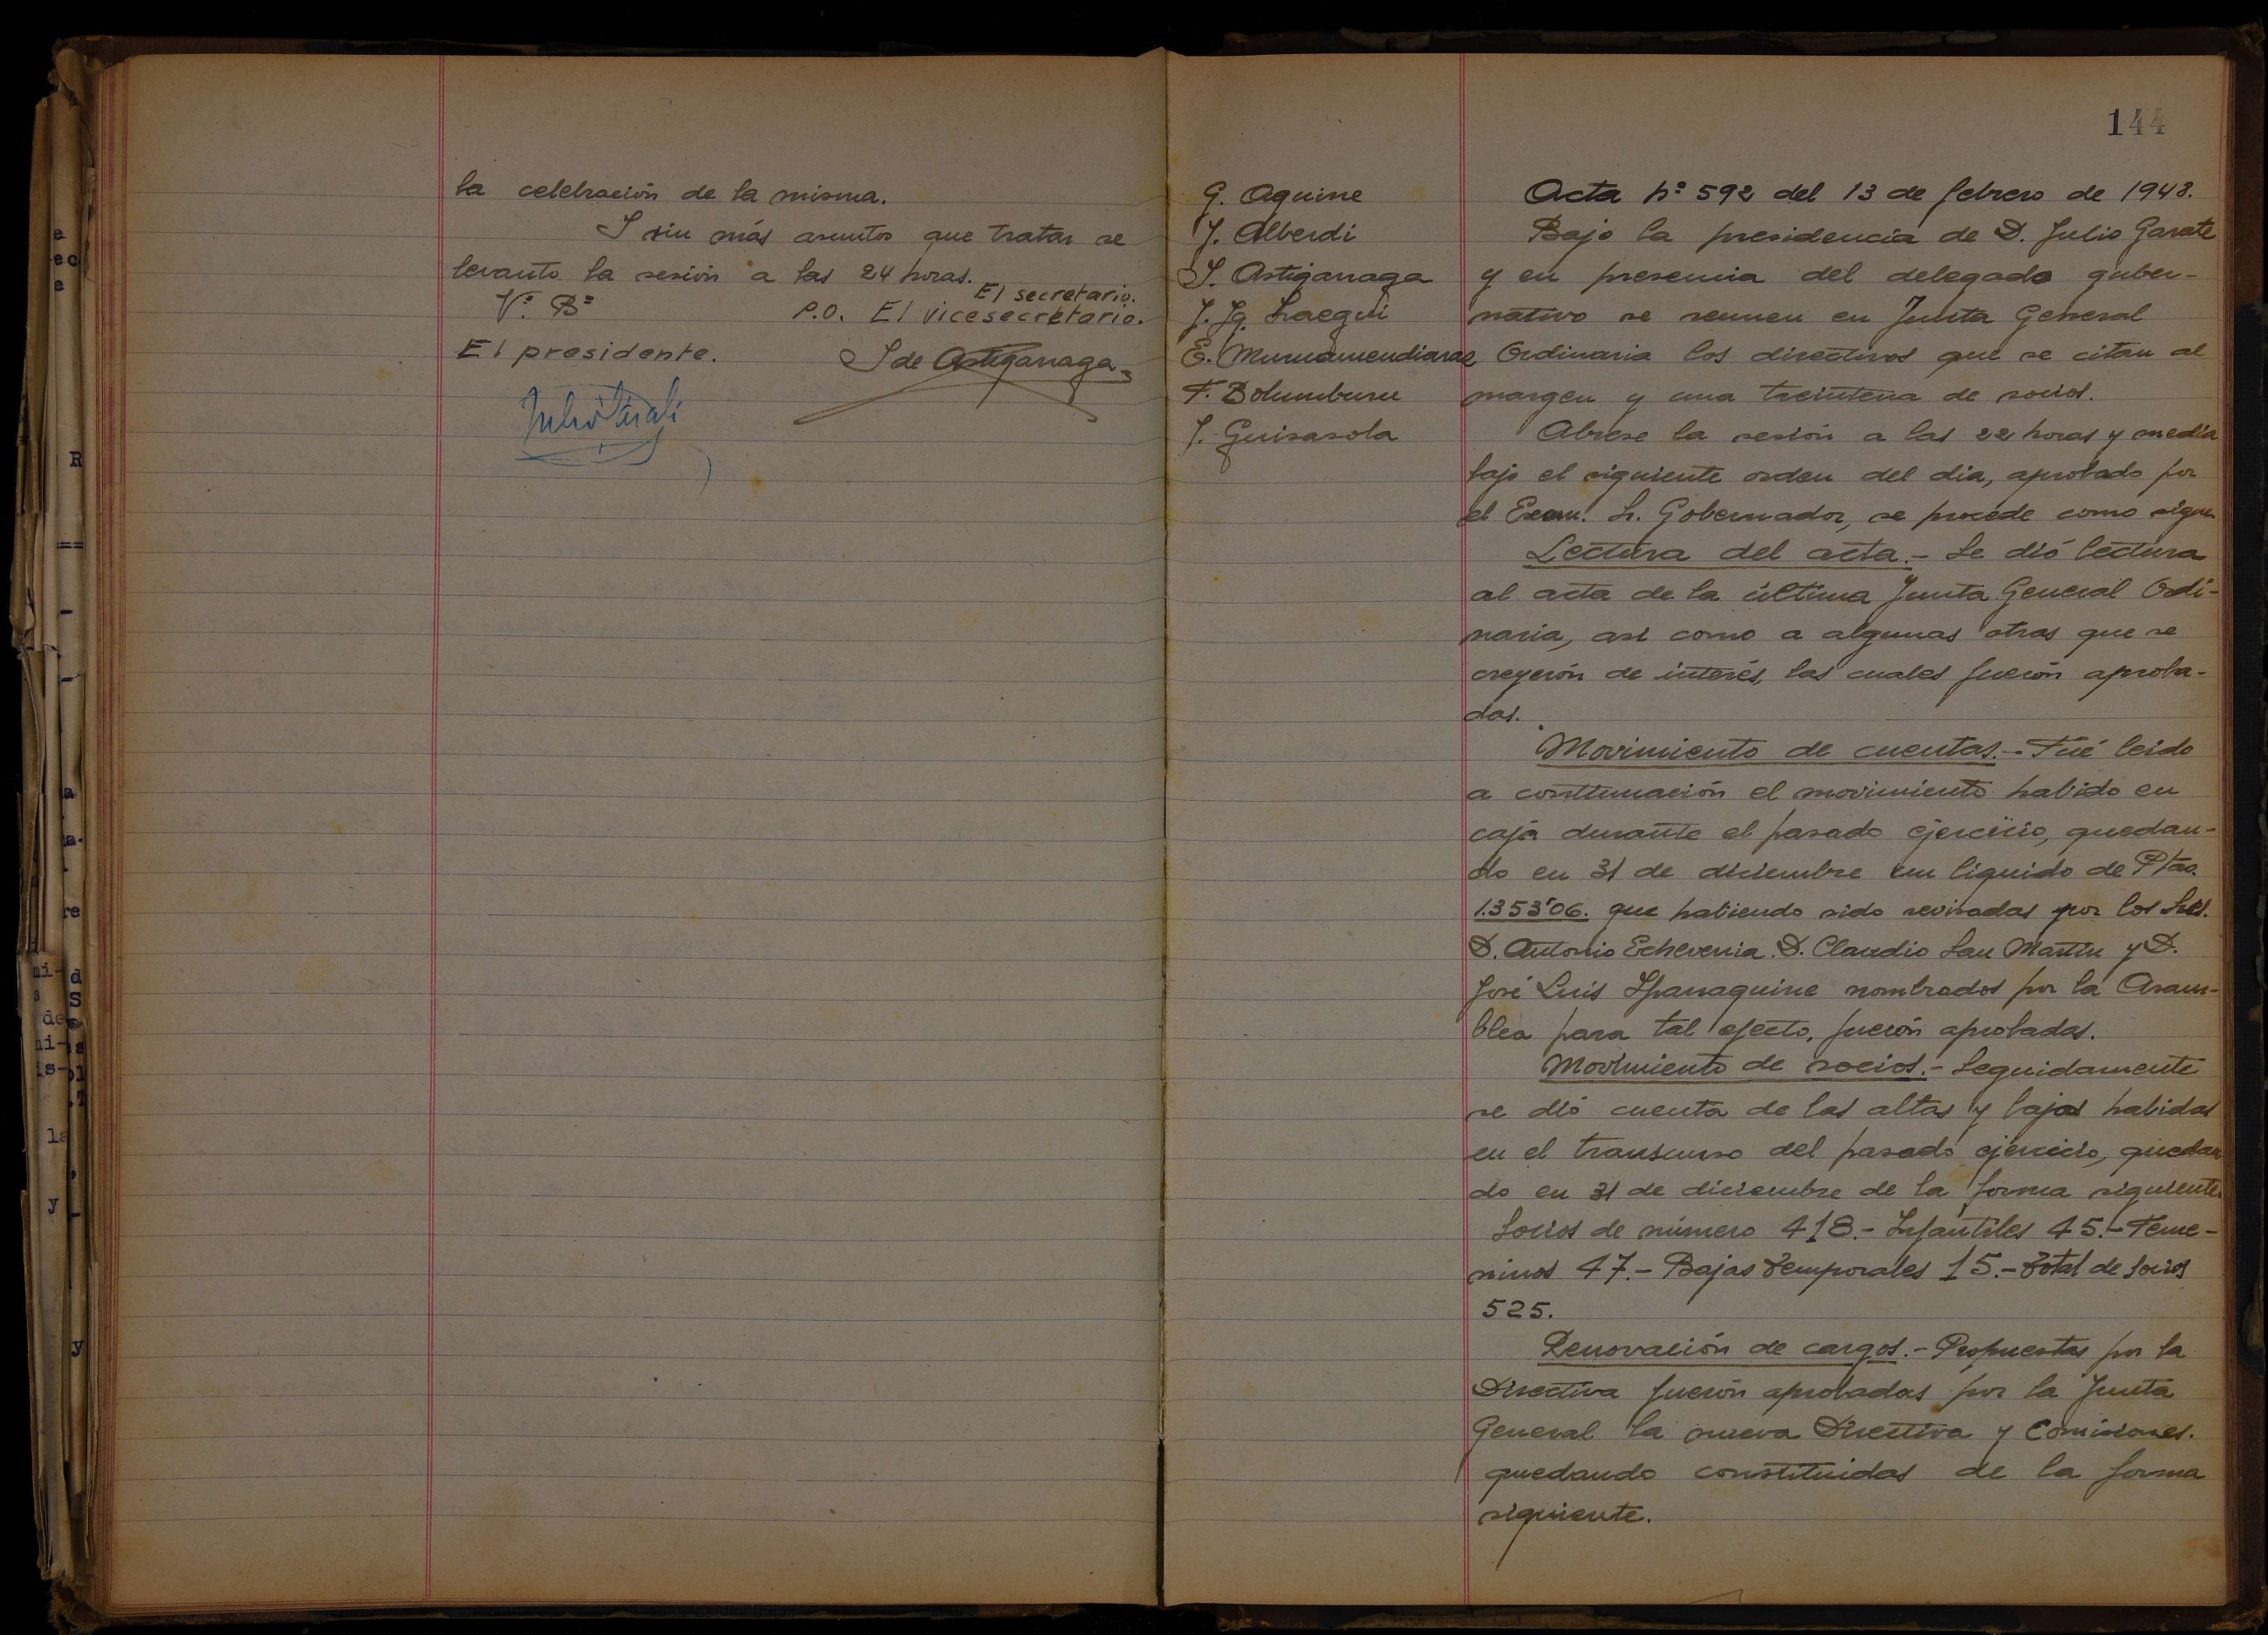 la celebración de la misma.
Y sin más asuntos que tratar se
levanto la sesión a las 24 horas.
El secretario.
Vº. Bº P.O. El vicesecretario.
El presidente. S de Astigarraga
144
G. Aguirre
J. Alberdi
S. Astigarraga
J. Iraegui
E. Muruamendiaraz
F. Bolumburu
J. Guisasola
Acta nº 592 del 13 de febrero de 1943.
Bajo la presidencia de D. Julio Garate
y en presencia del delegado guber-
nativo se reunen en Junta General
Ordinaria los directivos que se citan al
margen y una treintena de socios.
Abrese la sesión a las 22 horas y media
bajo el siguiente orden del dia, aprobado por
el Excm. Sr. Gobernador, se procede como sigue
Lectura del acta.- Se dió lectura
al acta de la última Junta General Ordi-
naria, asi como a algunas otras que se
creyerón de interés, las cuales fuerón aproba-
das.
Movimiento de cuentas.- Fué leido
a continuación el movimiento habido en
caja durante el pasado ejercicio, quedan-
do en 31 de diciembre un liquido de Ptas.
1.353'06. que habiendo sido revisadas por los Sres.
D. Antonio Echeverria. D. Claudio San Martin y D.
José Luis Iparraguirre nombrados por la Asam-
blea para tal efecto, fuerón aprobadas.
Movimiento de socios.- Seguidamente
se dió cuenta de las altas y bajas habidas
en el transcurso del pasado ejercicio, quedan
do en 31 de diciembre de la forma siguiente.
Socios de número 418.- Infantiles 45.- Feme-
ninos 47.- Bajas temporales 15.- Total de socios
525.
Renovación de cargos.- Propuestas por la
Directiva fuerón aprobadas por la Junta
General la nueva Directiva y Comisiones.
quedando constituidas de la forma
siguiente.